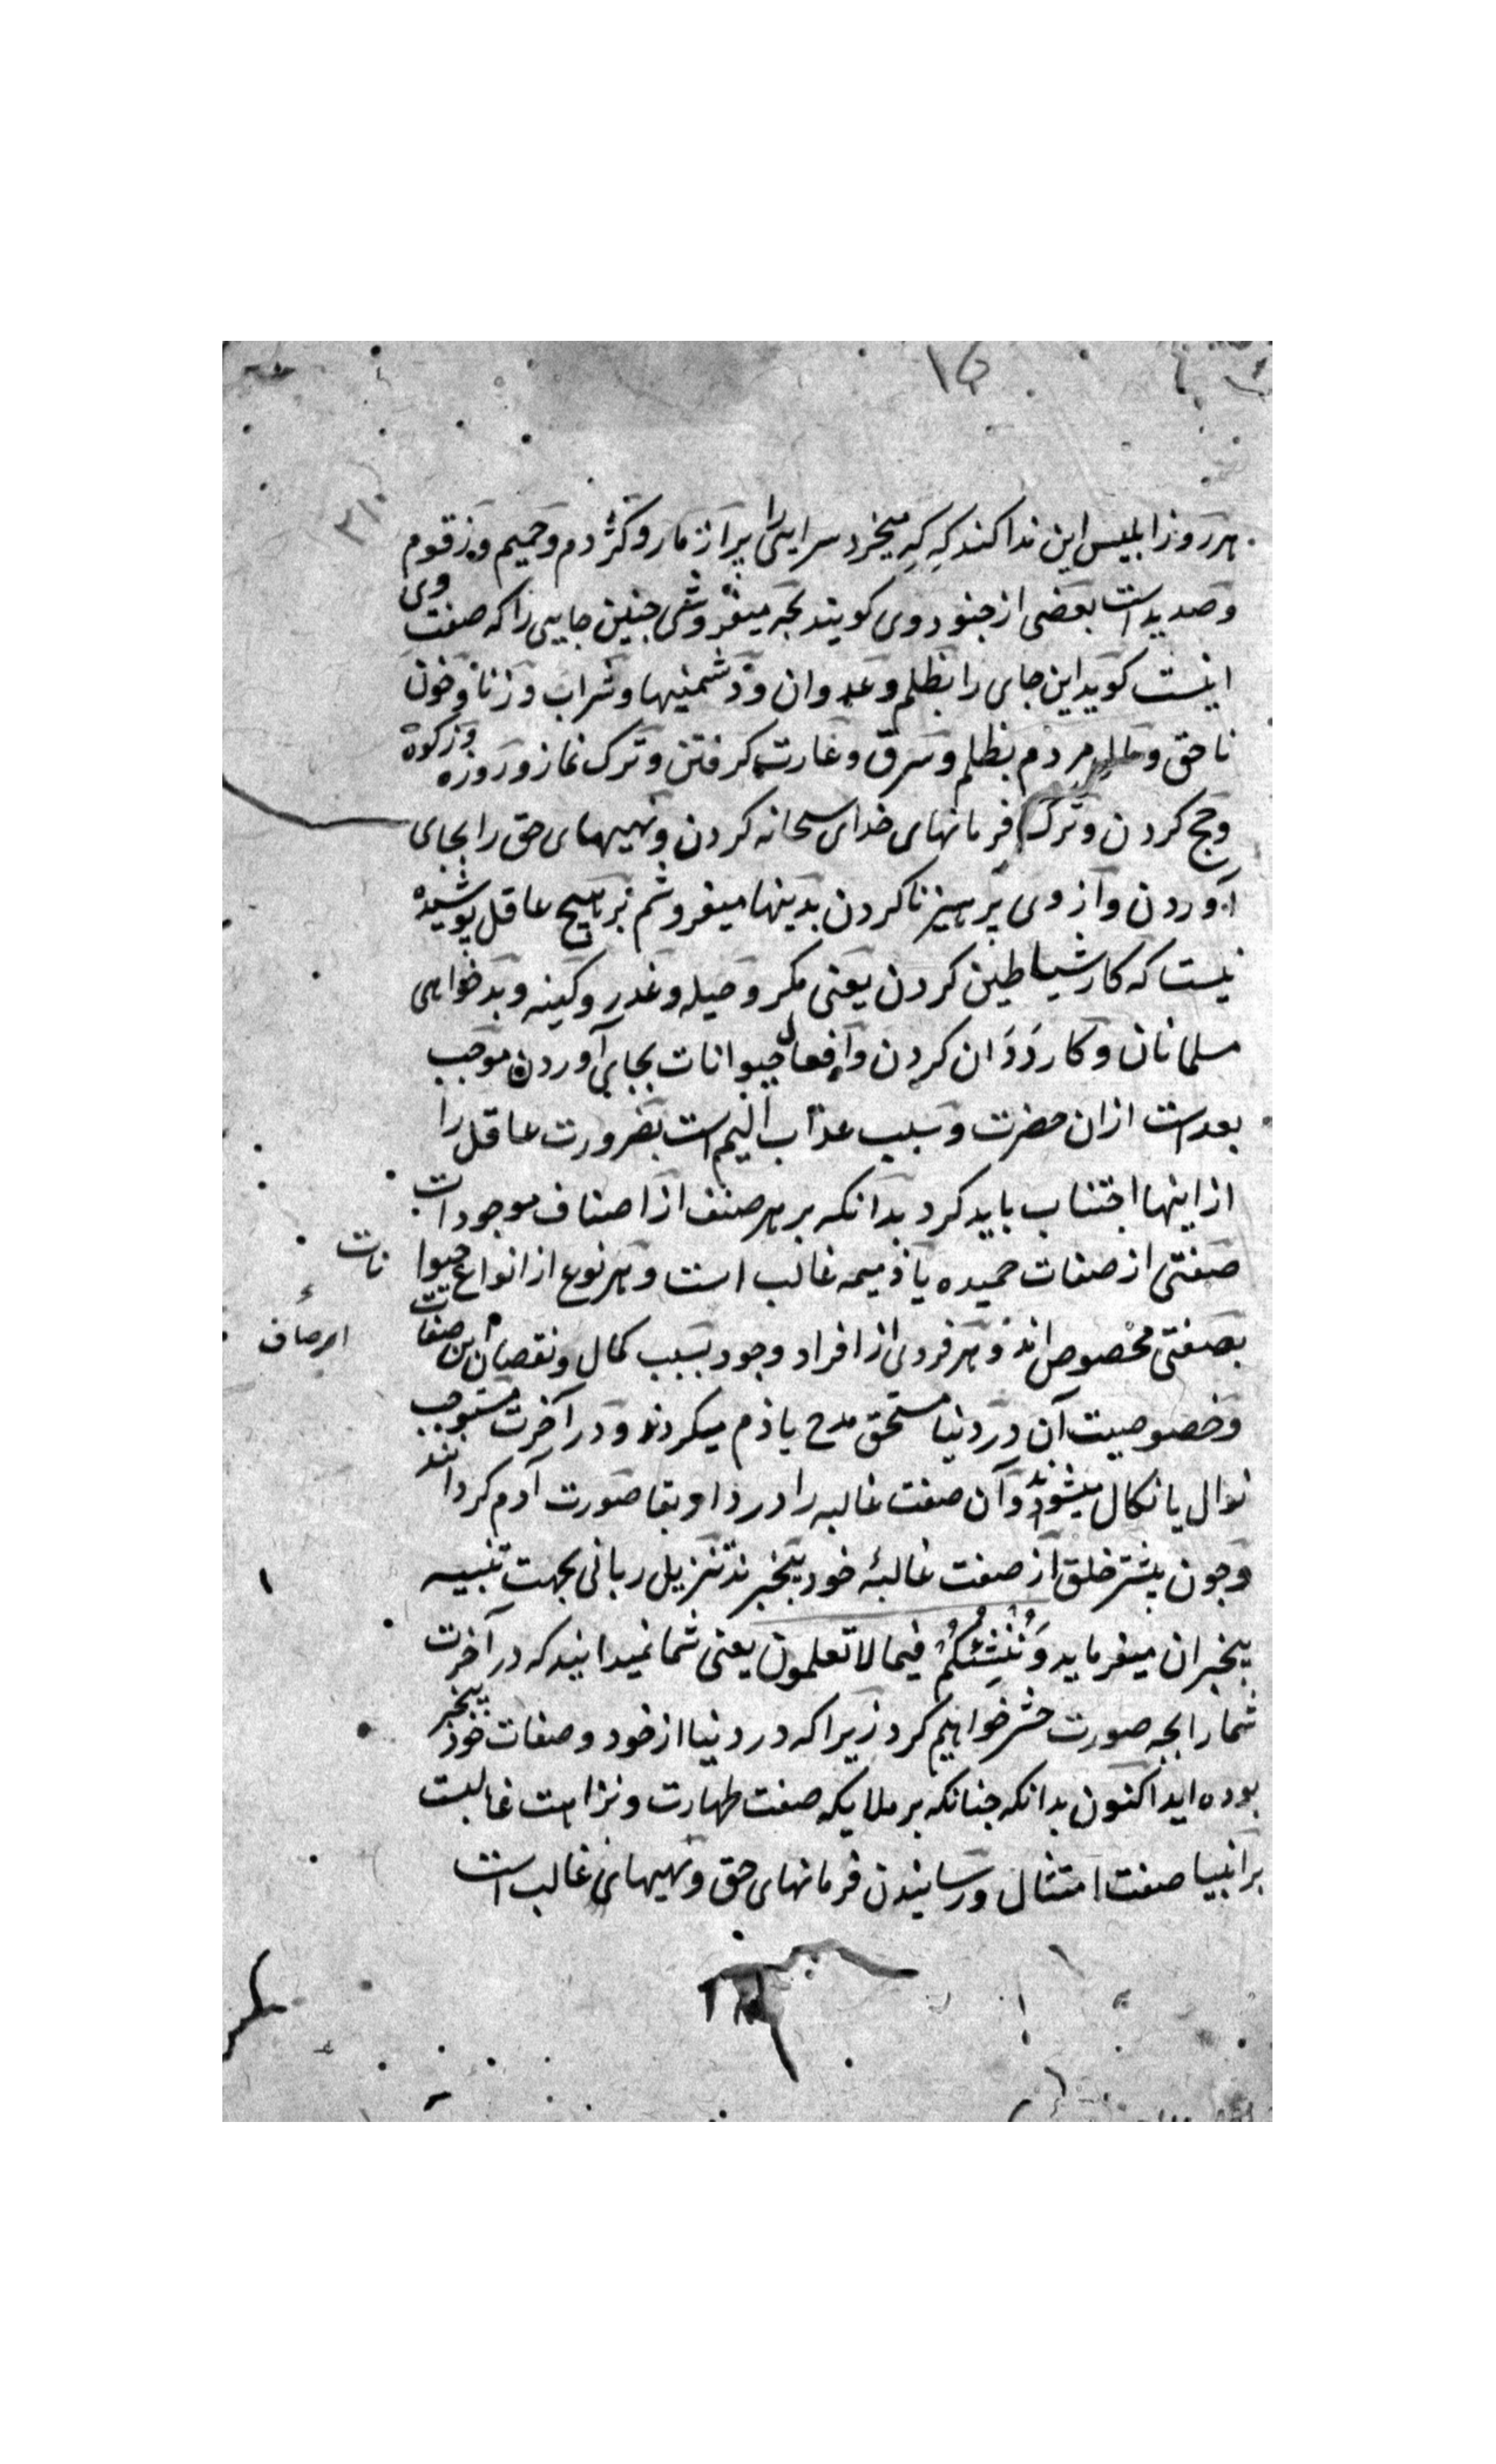 ۳۱
هر روز ابلیس این ندا کند که که میخرد سرایی را پر از مار و کژدم و حمیم و زقوم
و صدیدست بعضی از جنود وی کویند بجه میفروشی جنین جایی را که صفت وی
اینست کوید این جای را بظلم و عدوان و دشمنیها و شراب و زنا و خون
ناحق و مردم بظلم و سرق و غارت کرفتن و ترک نماز و روزه و زکوة
و حج کردن و ترک فرمانهای خدای سبحانه کردن و نهیهای حق را بجای
آوردن و از وی پرهیز ناکردن بدینها میفروشم بر هیچ عاقل پوشیده
نیست که کار شیاطین کردن یعنی مکر و حیله و غدر و کینه و بدخواهی
مسلمانان و کار ددان کردن و افعال حیوانات بجای آوردن موجب
بعدست ازان حضرت و سبب عذاب الیم است بضرورت عاقل را
از اینها اجتناب باید کرد بدانکه بر هر صنف از اصناف موجودات
صفتی از صفات حمیده یا ذمیمه غالب است و هر نوع از انواع حیوا
نات
بصفتی مخصوص اند و هر فردی از افراد وجود بسبب کمال و نقصان این صفات
و خصوصیت آن در دنیا مستحق مدح یا ذم میکردند و در آخرت مستوجب
نوال یا نکال میشوند و آن صفت غالبه را در دار بقا صورت آدم کردانند
و جون بیشتر خلق از صفت غالبهٔ خود بیخبرند تنزیل ربانی بجهت تنبیه
بیخبران میفرماید وَنُنْشِئَكُمْ فیما لا تعلمون یعنی شما نمیدانید که در آخرت
شما را بجه صورت حشر خواهیم کرد زیرا که در دنیا از خود و صفات خود بیخبر
بوده اید اکنون بدانکه جنانکه بر ملایکه صفت طهارت و نزاهت غالبست
بر انبیا صفت امتثال و رسانیدن فرمانهای حق و نهیهای غالب است